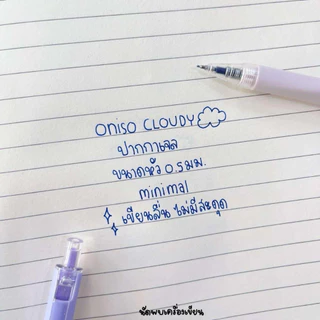 oniso CLOUDY
ปากกาเจล
ขนาดหัว 0.5 มม.
minimal
เขียนลื่น ไม่มีสะดุด
นัดพบเครื่องเขียน